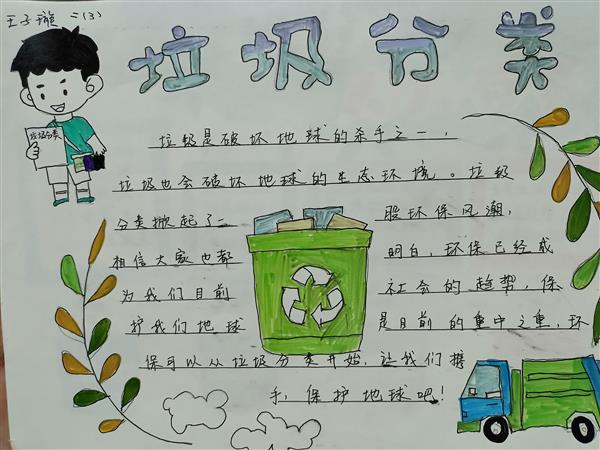 王子璇 二(3)
垃圾分类
垃圾分类
垃圾是破坏地球的杀手之一,
垃圾也会破坏地球的生态环境。垃圾
分类掀起了一 股环保风潮,
相信大家也都 明白,环保已经成
为我们目前 社会的趋势,保
护我们地球 是目前的重中之重,环
保可以从垃圾分类开始,让我们携
手,保护地球吧!